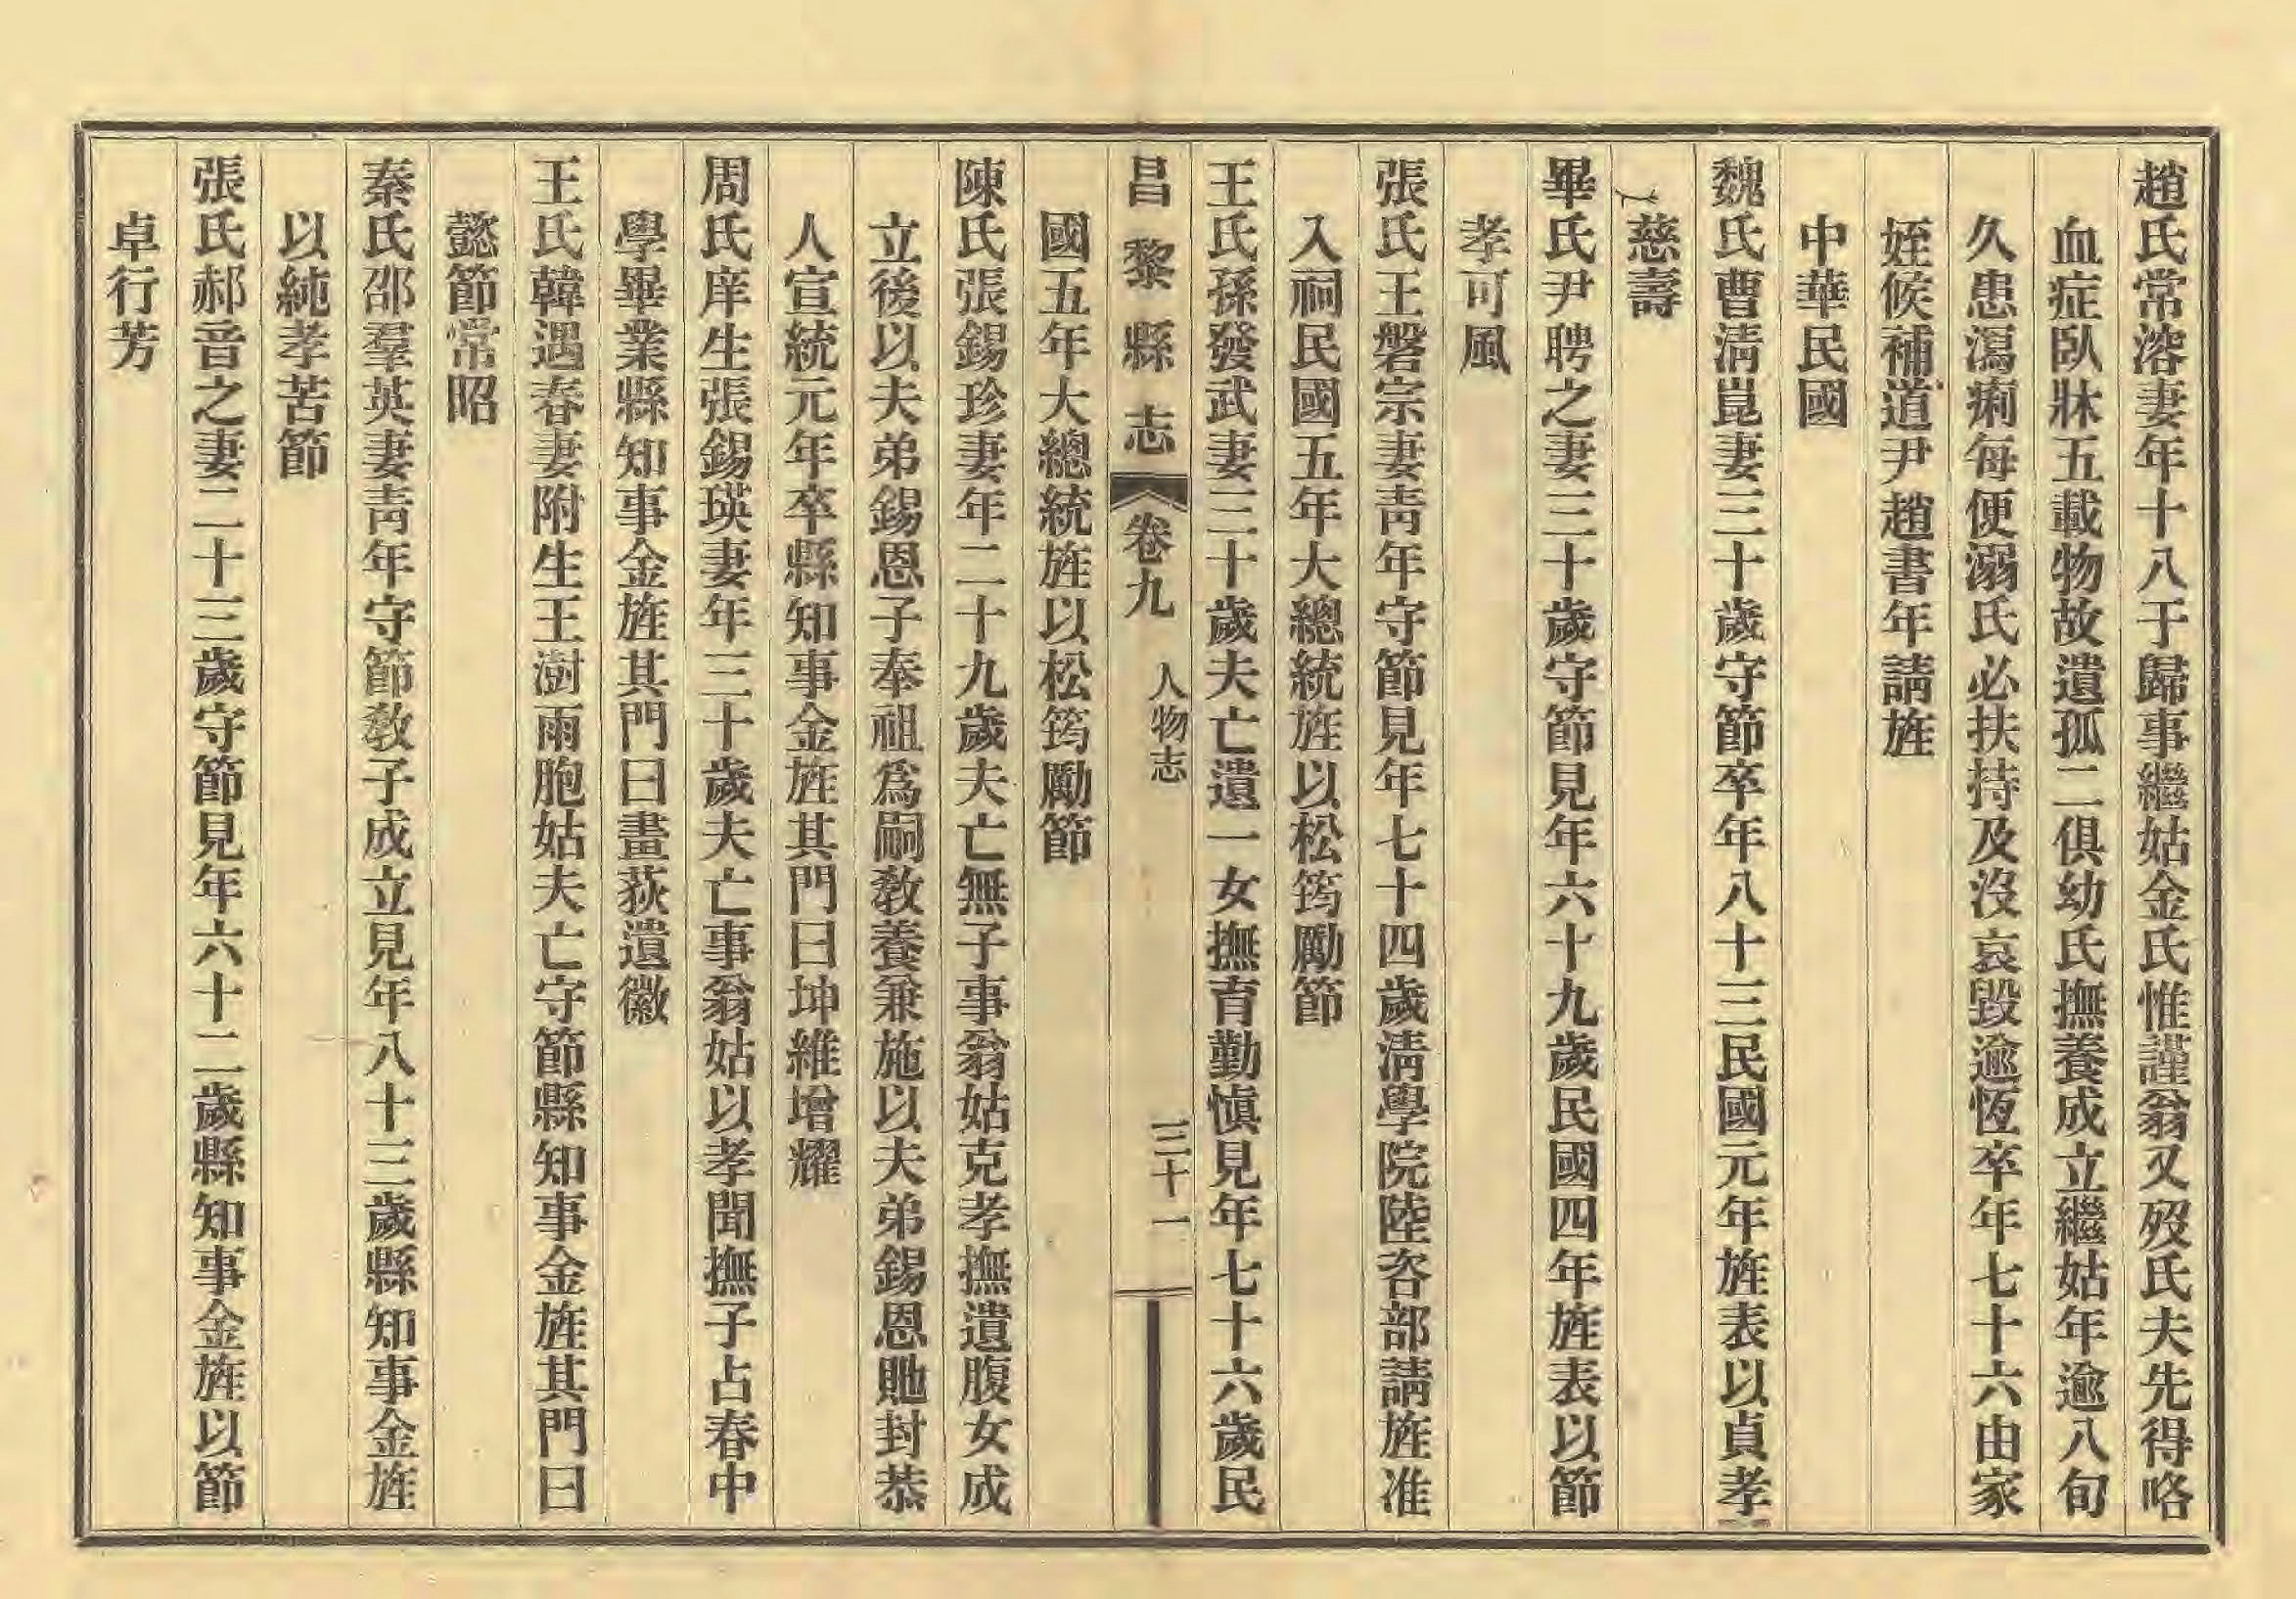 趙氏常溶妻年十八于歸事繼姑金氏惟謹翁又歿氏夫先得咯
血症臥牀五載物故遺孤二俱幼氏撫養成立繼姑年逾八旬
久患瀉痢每便溺氏必扶持及沒哀毀逾恆卒年七十六由家
姪候補道尹趙書年請旌
中華民國
魏氏曹淸崑妻三十歲守節卒年八十三民國元年旌表以貞孝
慈壽
畢氏尹聘之妻三十歲守節見年六十九歲民國四年旌表以節
孝可風
張氏王磐宗妻靑年守節見年七十四歲淸學院陸咨部請旌准
入祠民國五年大總統旌以松筠勵節
王氏孫發武妻三十歲夫亡遺一女撫育勤愼見年七十六歲民
昌黎縣志 卷九 人物志 三十一
國五年大總統旌以松筠勵節
陳氏張錫珍妻年二十九歲夫亡無子事翁姑克孝撫遺腹女成
立後以夫弟錫恩子奉祖爲嗣敎養兼施以夫弟錫恩貤封恭
人宣統元年卒縣知事金旌其門曰坤維增耀
周氏庠生張錫瑛妻年三十歲夫亡事翁姑以孝聞撫子占春中
學畢業縣知事金旌其門曰畫荻遺徽
王氏韓遇春妻附生王澍雨胞姑夫亡守節縣知事金旌其門曰
懿節常昭
秦氏邵羣英妻靑年守節敎子成立見年八十三歲縣知事金旌
以純孝苦節
張氏郝音之妻二十三歲守節見年六十二歲縣知事金旌以節
卓行芳